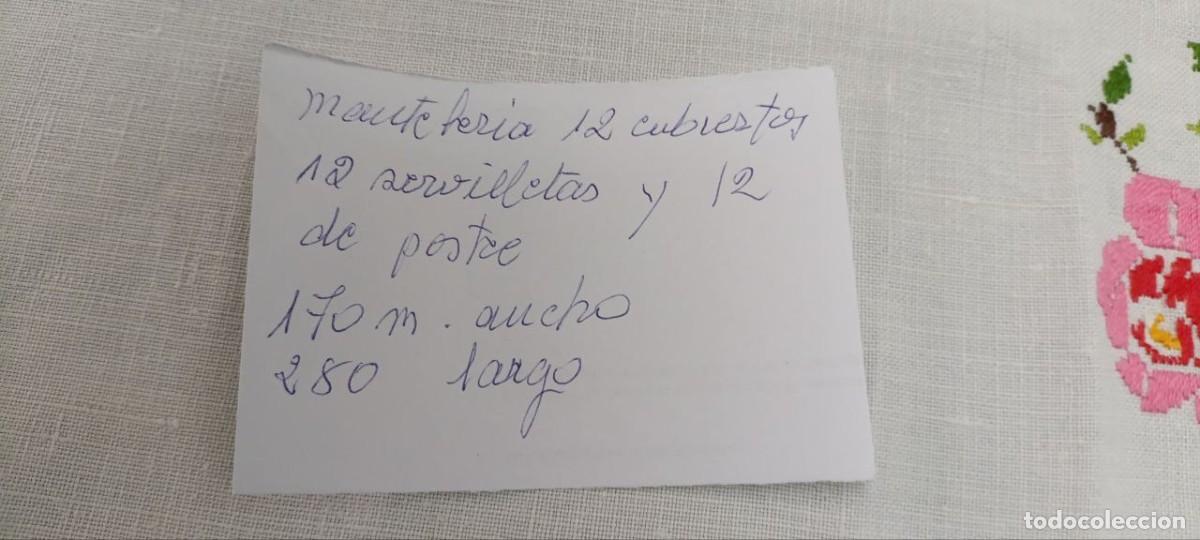 manteleria 12 cubiertos
12 servilletas y 12
de postre
170 m. ancho
280 largo
todocoleccion